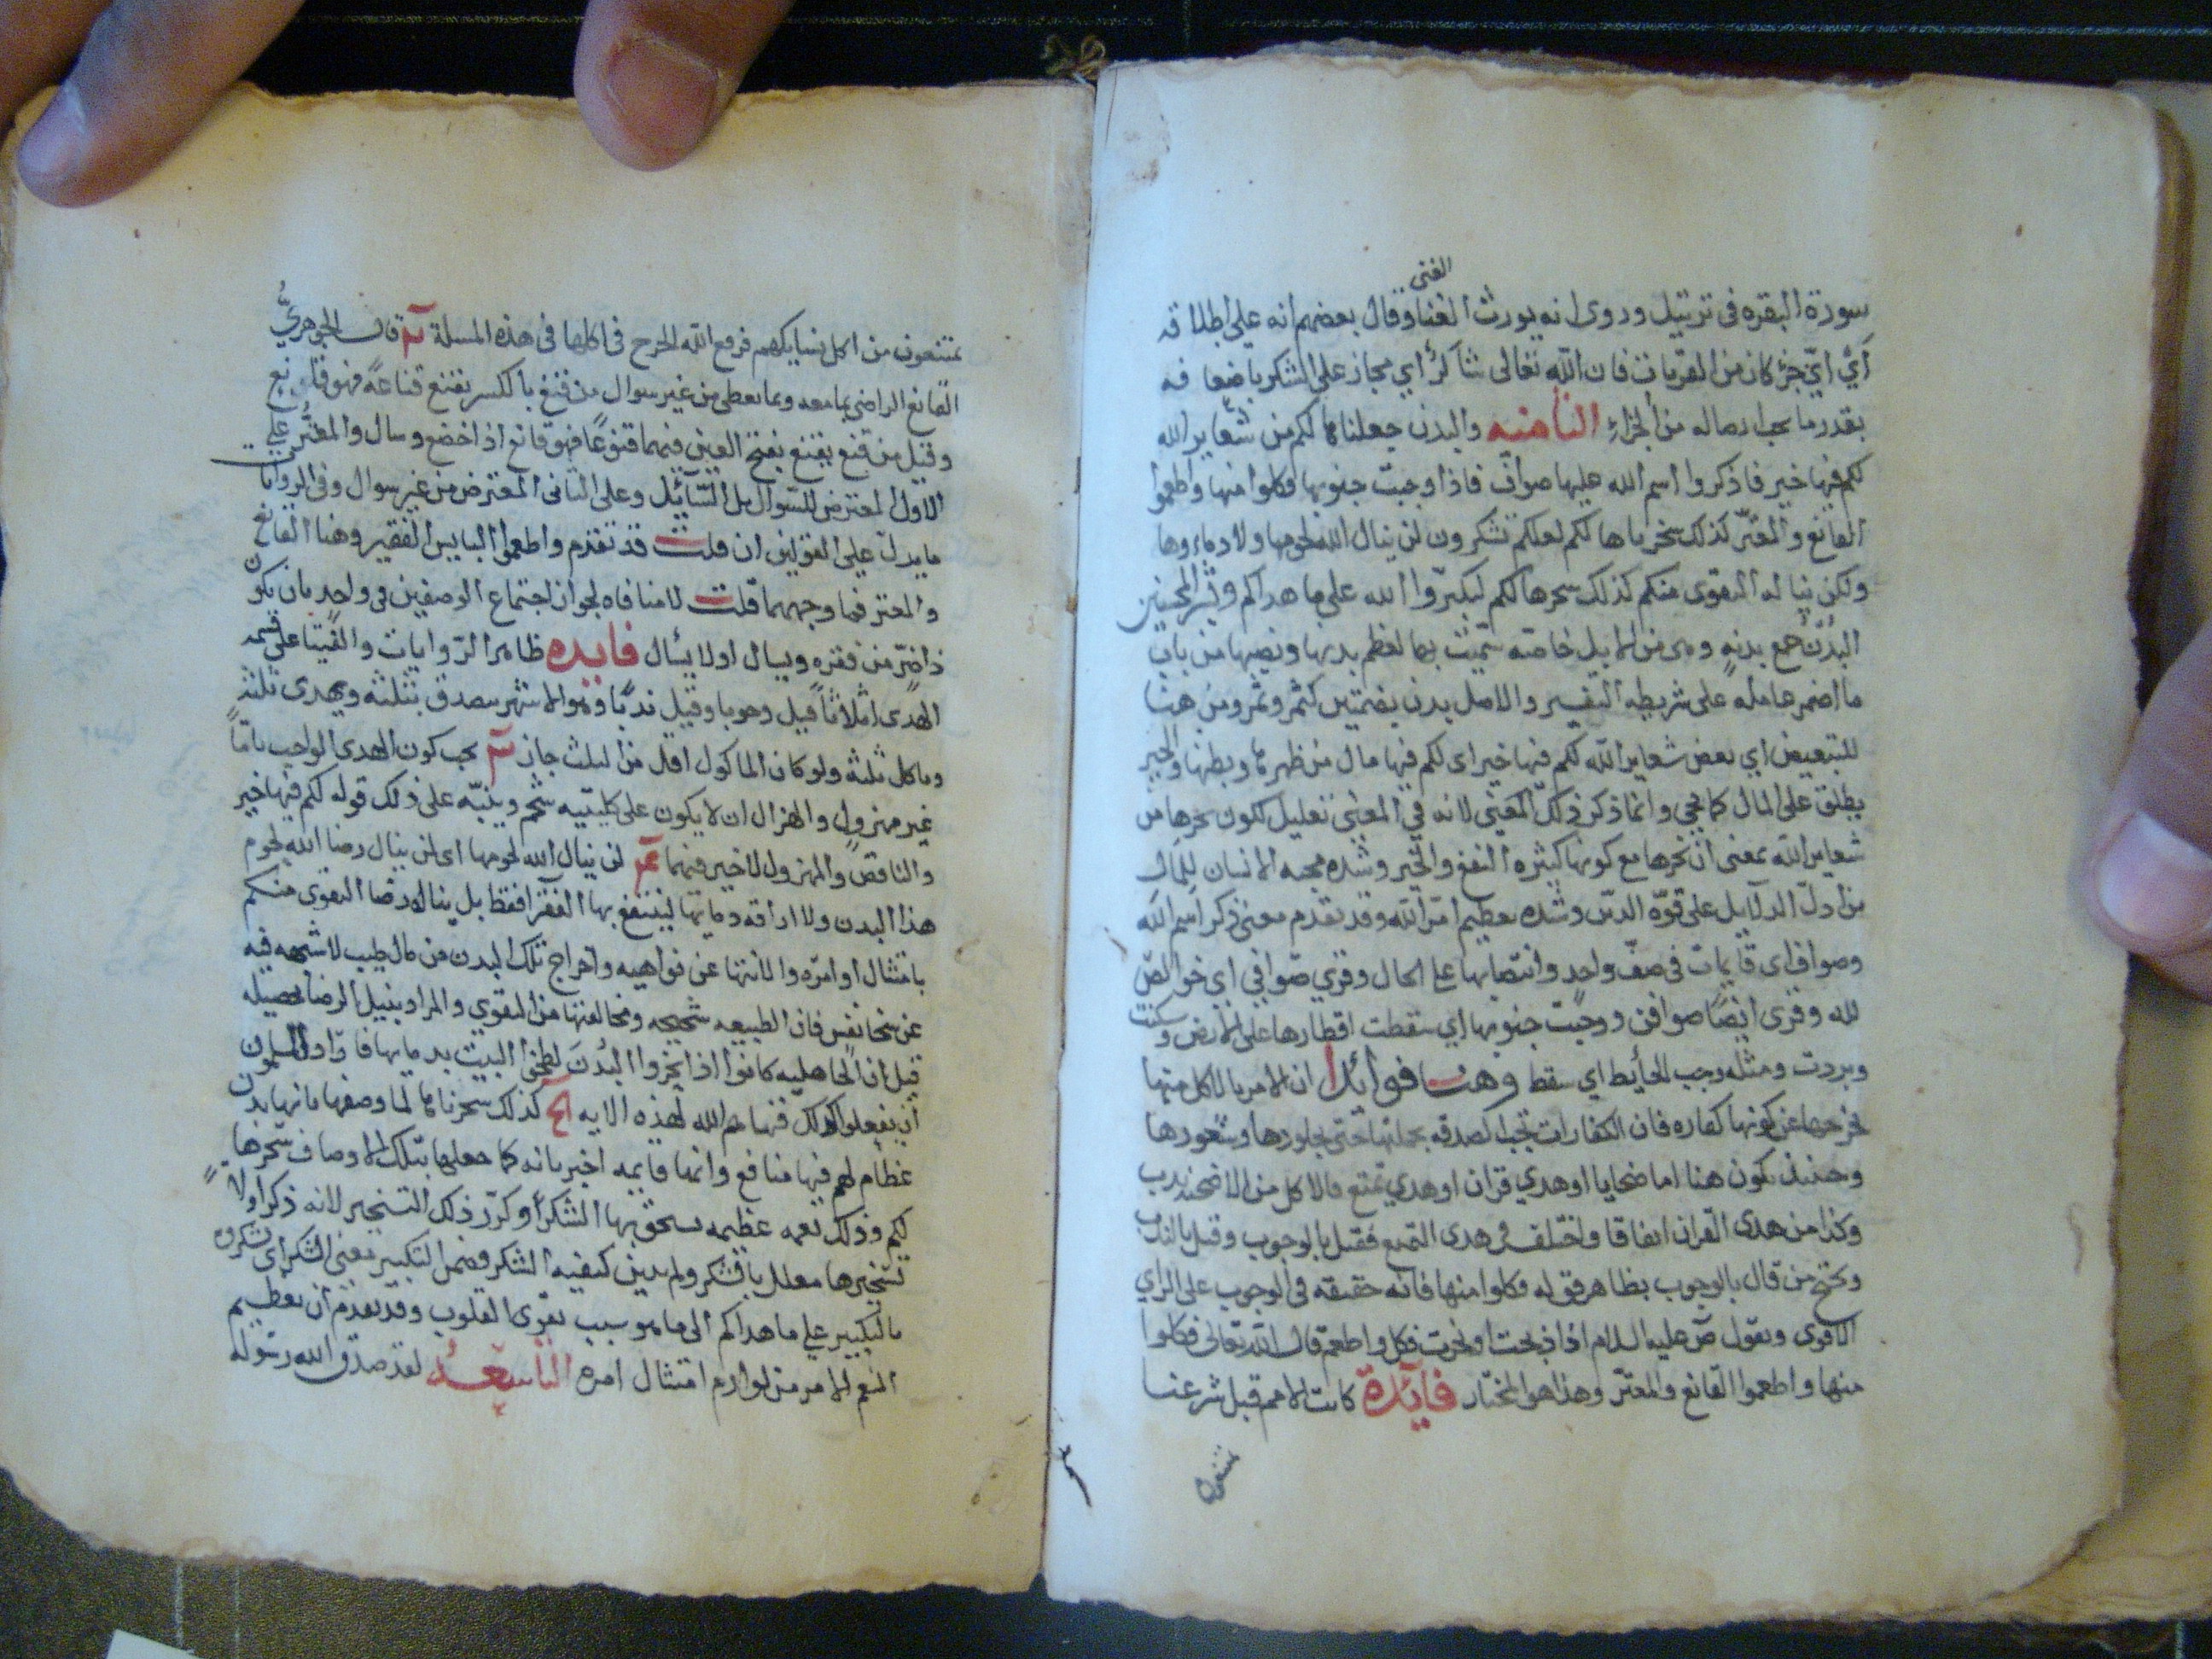 الفنى
سورة البقره فى ترتيل وروى انه يورث الغنا وقال بعضهم انه على اطلاقه
أيّ ايّ خيرٍ كان من القربات فان الله تعالى شاكرٌ أي مجاز على الشكر باضعافه
بقدر ما يجب ايصاله من الجزاءِ الثامنه والبدن جعلناها لكم من شعاير الله
لكم فيها خير فاذكروا اسم الله عليها صوافّ فاذا وجبت جنوبها فكلوا منها واطعموا
القانع والمعترّ كذلك سخرناها لكم لعلكم تشكرون لن ينال الله لحومها ولا دماءوها
ولكن يناله التقوى منكم كذلك سخرها لكم لتكبّروا الله على ما هداكم وبشر المحسنين
البُدْنُ جمع بدنةٍ وهى من الابيل خاصته سمّيت بها لعظم بدنها ونصبها من باب
ما اضمر عامله على شريطه التفسير والاصل بدن بضمتين كثمر وثمر ومن هنا
للتبعيض اي بعض شعاير الله لكم فيها خير اى لكم فيها مال من ظهرها وبطنها والخير
يطلق على المال كما يجى وانما ذكر ذلك المعنى لانه في المعنى تعليل لكون نحرها من
شعاير الله بمعنى ان نحرها مع كونها كثيره النفع والخير وشده محبه الانسان للمال
من ادلّ الدلايل على قوّه الدين وشده تعظيم امر الله وقد تقدم معنى ذكر اسم الله
وصواف اى قايمات فى صفّ واحدٍ وانتصابها على الحال وقرى صوافي اي خوالص
لله وقرى ايضًا صوافن ووجبت جنوبها اي سقطت اقطارها على الارض وسكنت
وبردت ومثله وجب الحأيط اي سقط وهنا فوائد ا ان الامر بالاكل منها
يخرجها عن كونها كفاره فان الكفارات يجب الصدقه بجملتها حتى بجلودها وشعورها
وحينئذ يكون هنا اما ضحايا او هدي قران او هدي تمتع فالاكل من الاضحيه ندب
وكذا من هدى القران اتفاقا واختلف فى هدى التمتع فقيل بالوجوب وقيل بالندب
ويحتج من قال بالوجوب بظاهر قوله فكلوا منها فانه حقيقه فى الوجوب على الراي
الاقوى وبقول صَ عليه السلام اذا ذبحت او نحرت فكل واطعم قال الله تعالى فكلوا
منها واطعموا القانع والمعترّ وهذا هو المختار فايَدة كانت الامم قبل شرعنا
يمتنعون من اكل نسايكهم فرفع الله الحرج فى اكلها فى هذه المسلة قال الجوهريّ
القانع الراضي بما معه وبما يعطى من غير سوال من قنع بالكسر يقنع قناعةً فهو قانع
وقيل من قنع يقنع بفتح العين فيهما قنوعًا فهو قانع اذا خضع وسال والمعترّ على
الاول المعترض للسوال بل السّايل وعلى الثانى المعترض من غير سوال وفى الروايات
ما يدل على القولين ان قلت قد تقدم واطعموا البايس الفقير وهنا القانع
والمعتر فما وجههما قلت لا منافاه لجواز اجتماع الوصفين فى واحد بان يكون
ذا ضرّ من فقره ويسال اولا يسال فايده ظاهر الرّوايات والفتيا على قسمه
الهدى اثلاثاً قيل وجوبا وقيل ندباً وهو الاشهر يتصدق بثلثه ويهدى ثلثه
وياكل ثلثه ولو كان الماكول اقل من الثلث جاز يجب كون الهدى الواجب تاماً
غير مهزولٍ والهزال ان لا يكون على كليتيه شحم وينبّه على ذلك قوله لكم فيها خير
والناقص والمهزول لا خير فيهما لن ينال الله لحومها اى لن ينال رضا الله لحوم
هذا البدن ولا اراقه دمايها لينتفع بها الفقرا فقط بل يناله رضا التقوى منكم
بامتثال أوامره والانتها عن نواهيه واخراج تلك البدن من مال طيب لا شبهه فيه
عن سخا نفس فان الطبيعه شحيحه ومخالفتها من التقوي والمراد بنيل الرضا تحصيله
قيل ان الجاهليه كانوا اذا نحروا البُدنَ لطخوا البيت بدمايها فاراد المسلمون
أن يفعلوا كذلك فنهاهم الله لهذه الايه كذلك سخرناها لما وصفها بانها بدن
عظام لهم فيها منافع وانها قايمه اخبر بانه كما جعلها بتلك الاوصاف سخّرها
لكم وذلك نعمه عظيمه يستحق بها الشكر وكرّر ذلك التسخير لانه ذكر اولاً
تسخيرها معللا بالشكر ولم يبين كيفيه الشكر فضمن التكبير معنى الشكر أي تشكروه
بالتكبير على ما هداكم الى ما هو سبب تقوى القلوب وقد تقدم ان تعظيم
امتثال امره التاسعه لقد صدق الله رسوله